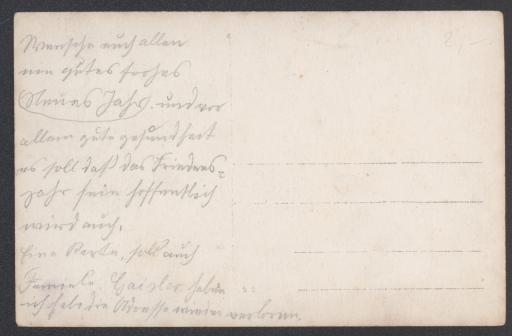 Wünsche euch allen
ein gutes frohes
Neues Jahr. und vor
allem gute gesundheit
es soll daß das Friedens=
jahr sein hoffentlich
wird auch.
Eine Karte, soll auch
Familie Gaisler haben
ich habe die Adresse wieder verloren.
2,–